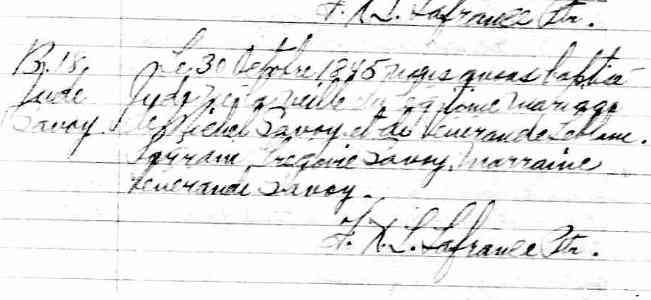 F. X. L. Lafrance Ptr.
B. 18.
Jude
Savoy
Le 30 Octobre 1845 nous avons baptisé
Jude né la veille du légitime mariage
de Michel Savoy et de Venerande Leblanc.
Parrain Gregoire Savoy, marraine
Venerande Savoy.
F. X. L. Lafrance Ptr.